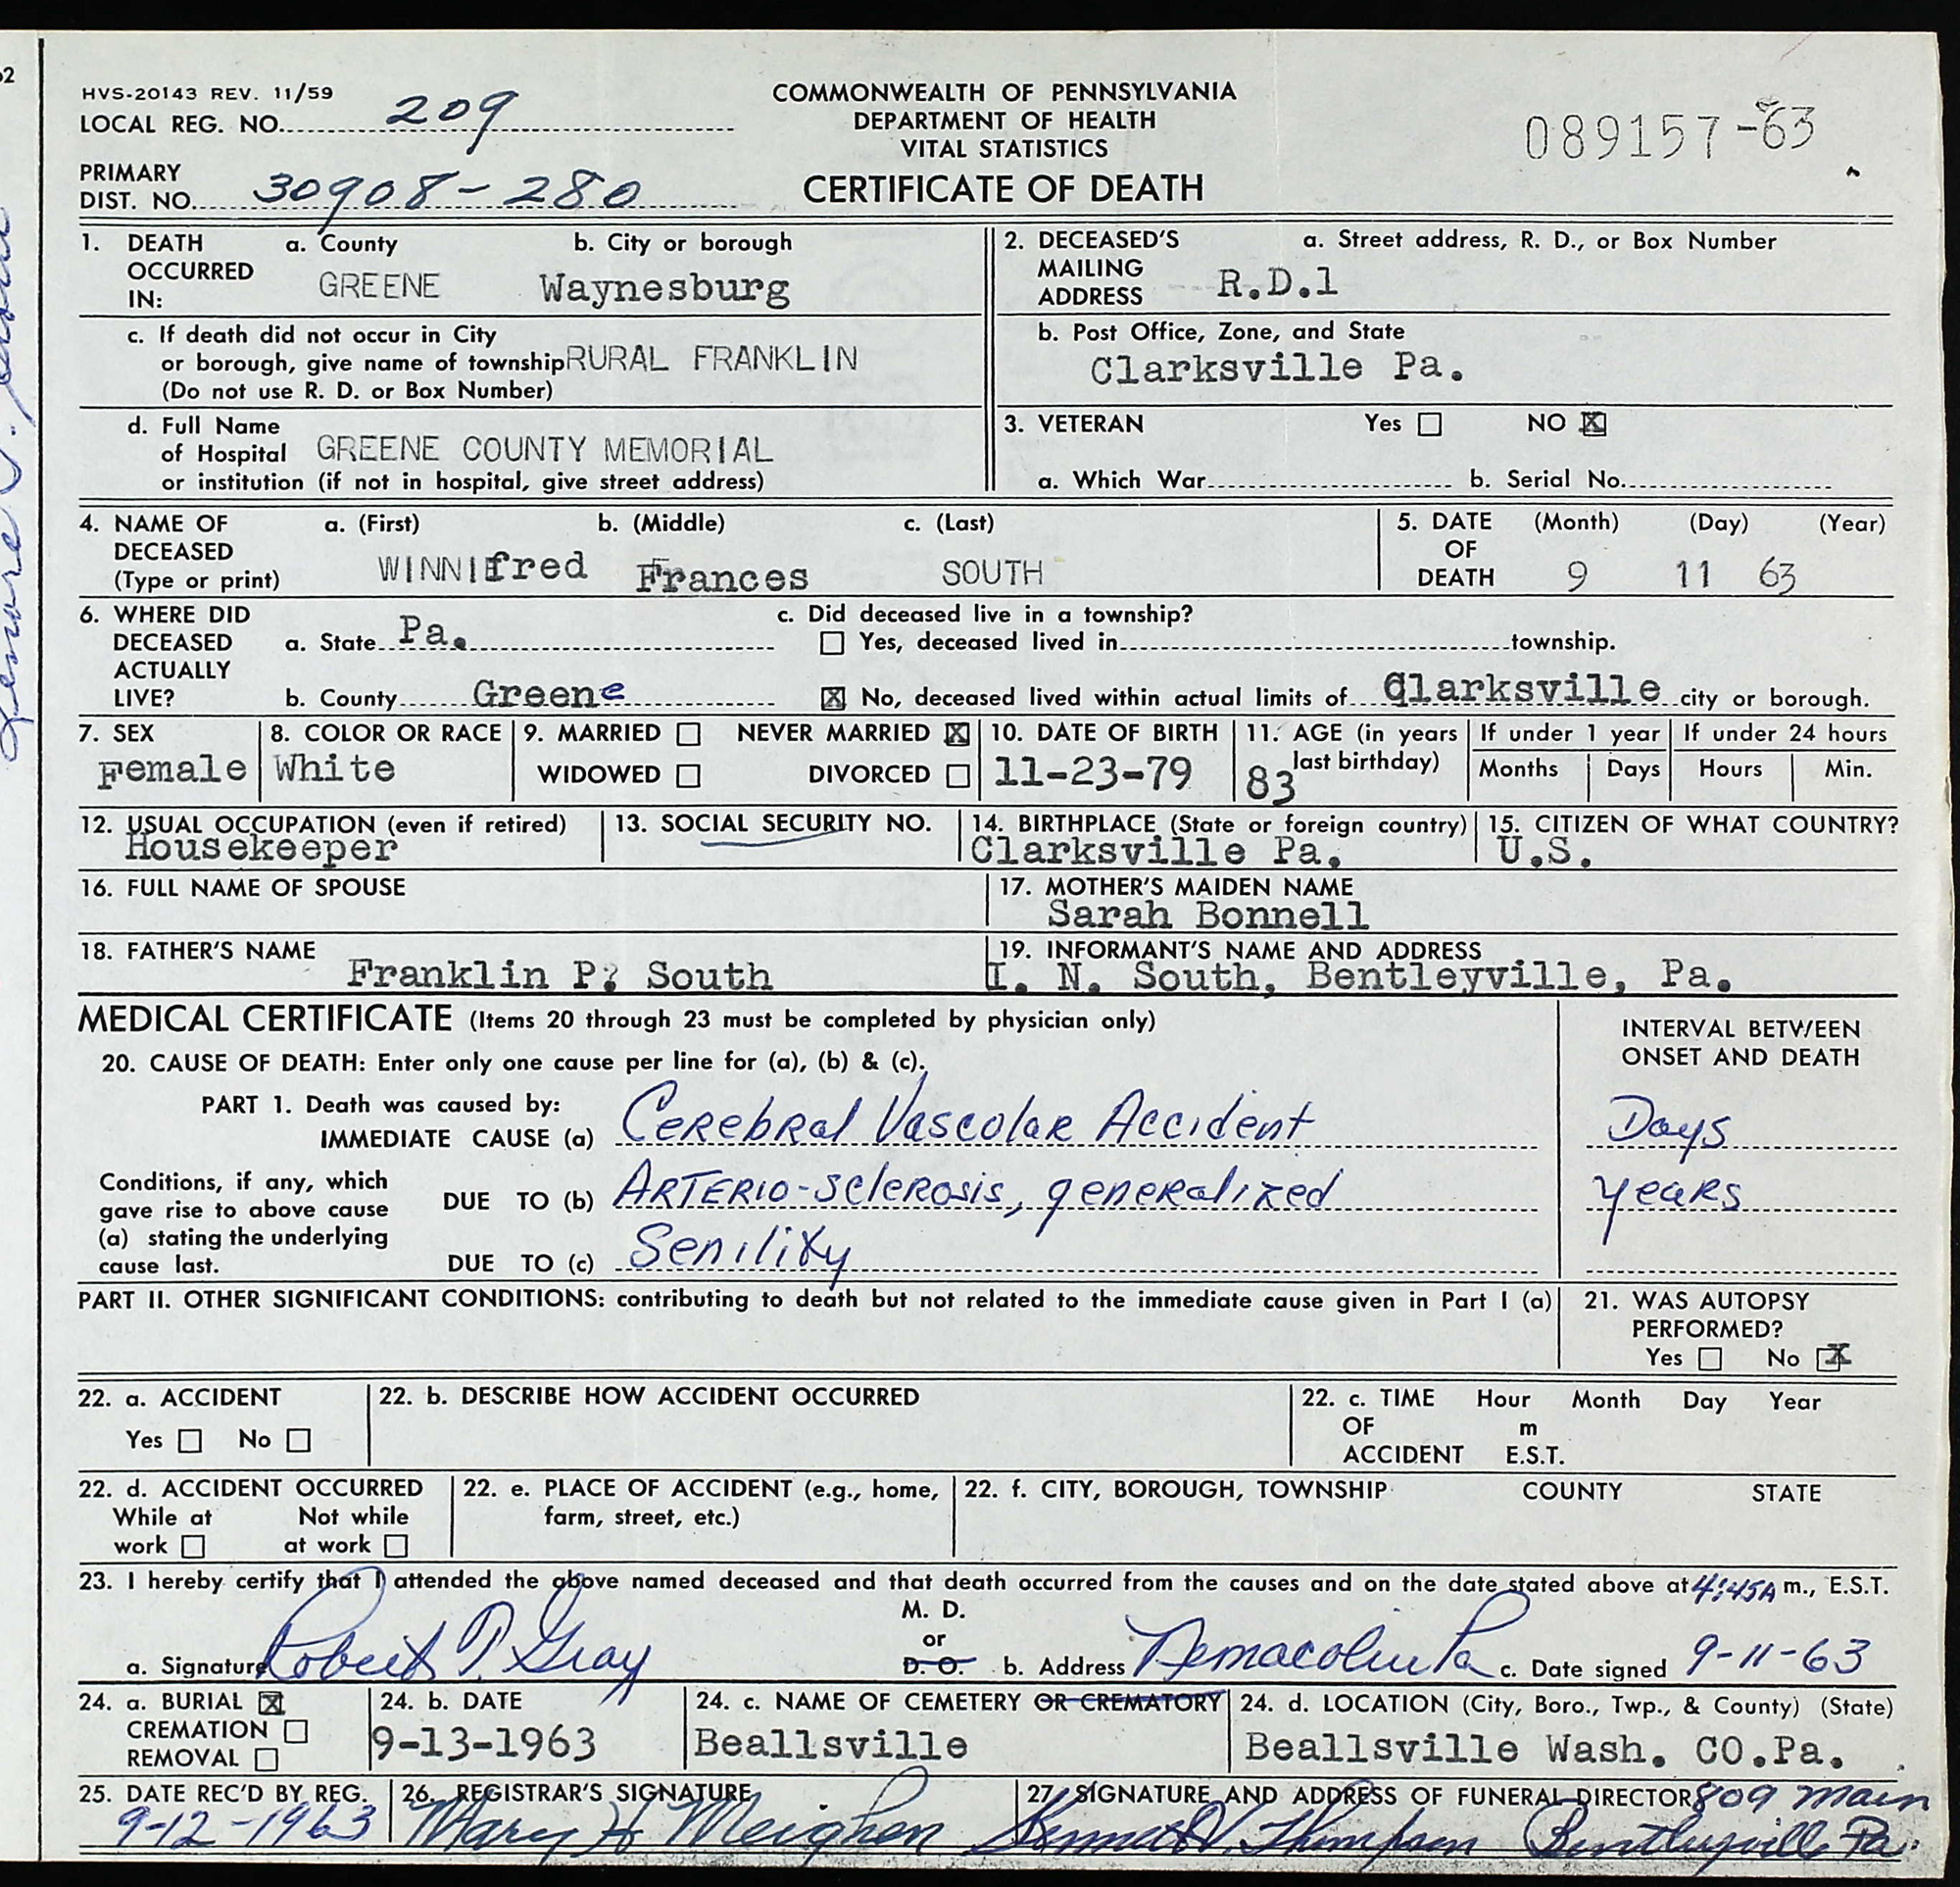 HVS-20143 REV. 11/59
LOCAL REG. NO. 209
PRIMARY
DIST. NO. 30908-280
COMMONWEALTH OF PENNSYLVANIA
DEPARTMENT OF HEALTH
VITAL STATISTICS
CERTIFICATE OF DEATH
089157-63
1. DEATH OCCURRED IN: a. County GREENE b. City or borough Waynesburg
c. If death did not occur in City
or borough, give name of township RURAL FRANKLIN
(Do not use R. D. or Box Number)
d. Full Name
of Hospital GREENE COUNTY MEMORIAL
or institution (if not in hospital, give street address)
2. DECEASED'S MAILING ADDRESS a. Street address, R. D., or Box Number
R.D.1
b. Post Office, Zone, and State
Clarksville Pa.
3. VETERAN Yes ☐ NO ☒
a. Which War b. Serial No.
4. NAME OF DECEASED (Type or print) a. (First) b. (Middle) c. (Last)
WINNIfred Frances SOUTH
5. DATE OF DEATH (Month) (Day) (Year)
9 11 63
6. WHERE DID DECEASED ACTUALLY LIVE?
a. State Pa.
b. County Greene
c. Did deceased live in a township?
☐ Yes, deceased lived in township.
☒ No, deceased lived within actual limits of Clarksville city or borough.
7. SEX Female
8. COLOR OR RACE White
9. MARRIED ☐ NEVER MARRIED ☒
WIDOWED ☐ DIVORCED ☐
10. DATE OF BIRTH 11-23-79
11. AGE (in years last birthday) 83
If under 1 year Months Days
If under 24 hours Hours Min.
12. USUAL OCCUPATION (even if retired) Housekeeper
13. SOCIAL SECURITY NO.
14. BIRTHPLACE (State or foreign country) Clarksville Pa.
15. CITIZEN OF WHAT COUNTRY? U.S.
16. FULL NAME OF SPOUSE
17. MOTHER'S MAIDEN NAME Sarah Bonnell
18. FATHER'S NAME Franklin P? South
19. INFORMANT'S NAME AND ADDRESS I. N. South, Bentleyville, Pa.
MEDICAL CERTIFICATE (Items 20 through 23 must be completed by physician only)
INTERVAL BETWEEN ONSET AND DEATH
20. CAUSE OF DEATH: Enter only one cause per line for (a), (b) & (c).
PART 1. Death was caused by:
IMMEDIATE CAUSE (a) Cerebral Vascolar Accident Days
Conditions, if any, which gave rise to above cause (a) stating the underlying cause last.
DUE TO (b) Arterio-sclerosis, generalized years
DUE TO (c) Senility
PART II. OTHER SIGNIFICANT CONDITIONS: contributing to death but not related to the immediate cause given in Part I (a)
21. WAS AUTOPSY PERFORMED?
Yes ☐ No ☒
22. a. ACCIDENT
Yes ☐ No ☐
22. b. DESCRIBE HOW ACCIDENT OCCURRED
22. c. TIME OF ACCIDENT Hour Month Day Year
m
E.S.T.
22. d. ACCIDENT OCCURRED
While at work ☐ Not while at work ☐
22. e. PLACE OF ACCIDENT (e.g., home, farm, street, etc.)
22. f. CITY, BOROUGH, TOWNSHIP COUNTY STATE
23. I hereby certify that I attended the above named deceased and that death occurred from the causes and on the date stated above at 4:45A m., E.S.T.
a. Signature Robert P. Gray M. D. or D. O. b. Address Nemacolin Pa c. Date signed 9-11-63
24. a. BURIAL ☒
CREMATION ☐
REMOVAL ☐
24. b. DATE 9-13-1963
24. c. NAME OF CEMETERY OR CREMATORY Beallsville
24. d. LOCATION (City, Boro., Twp., & County) (State)
Beallsville Wash. CO.Pa.
25. DATE REC'D BY REG. 9-12-1963
26. REGISTRAR'S SIGNATURE Mary H Meighen
27. SIGNATURE AND ADDRESS OF FUNERAL DIRECTOR 809 Main
Thompson Bentleyville Pa.